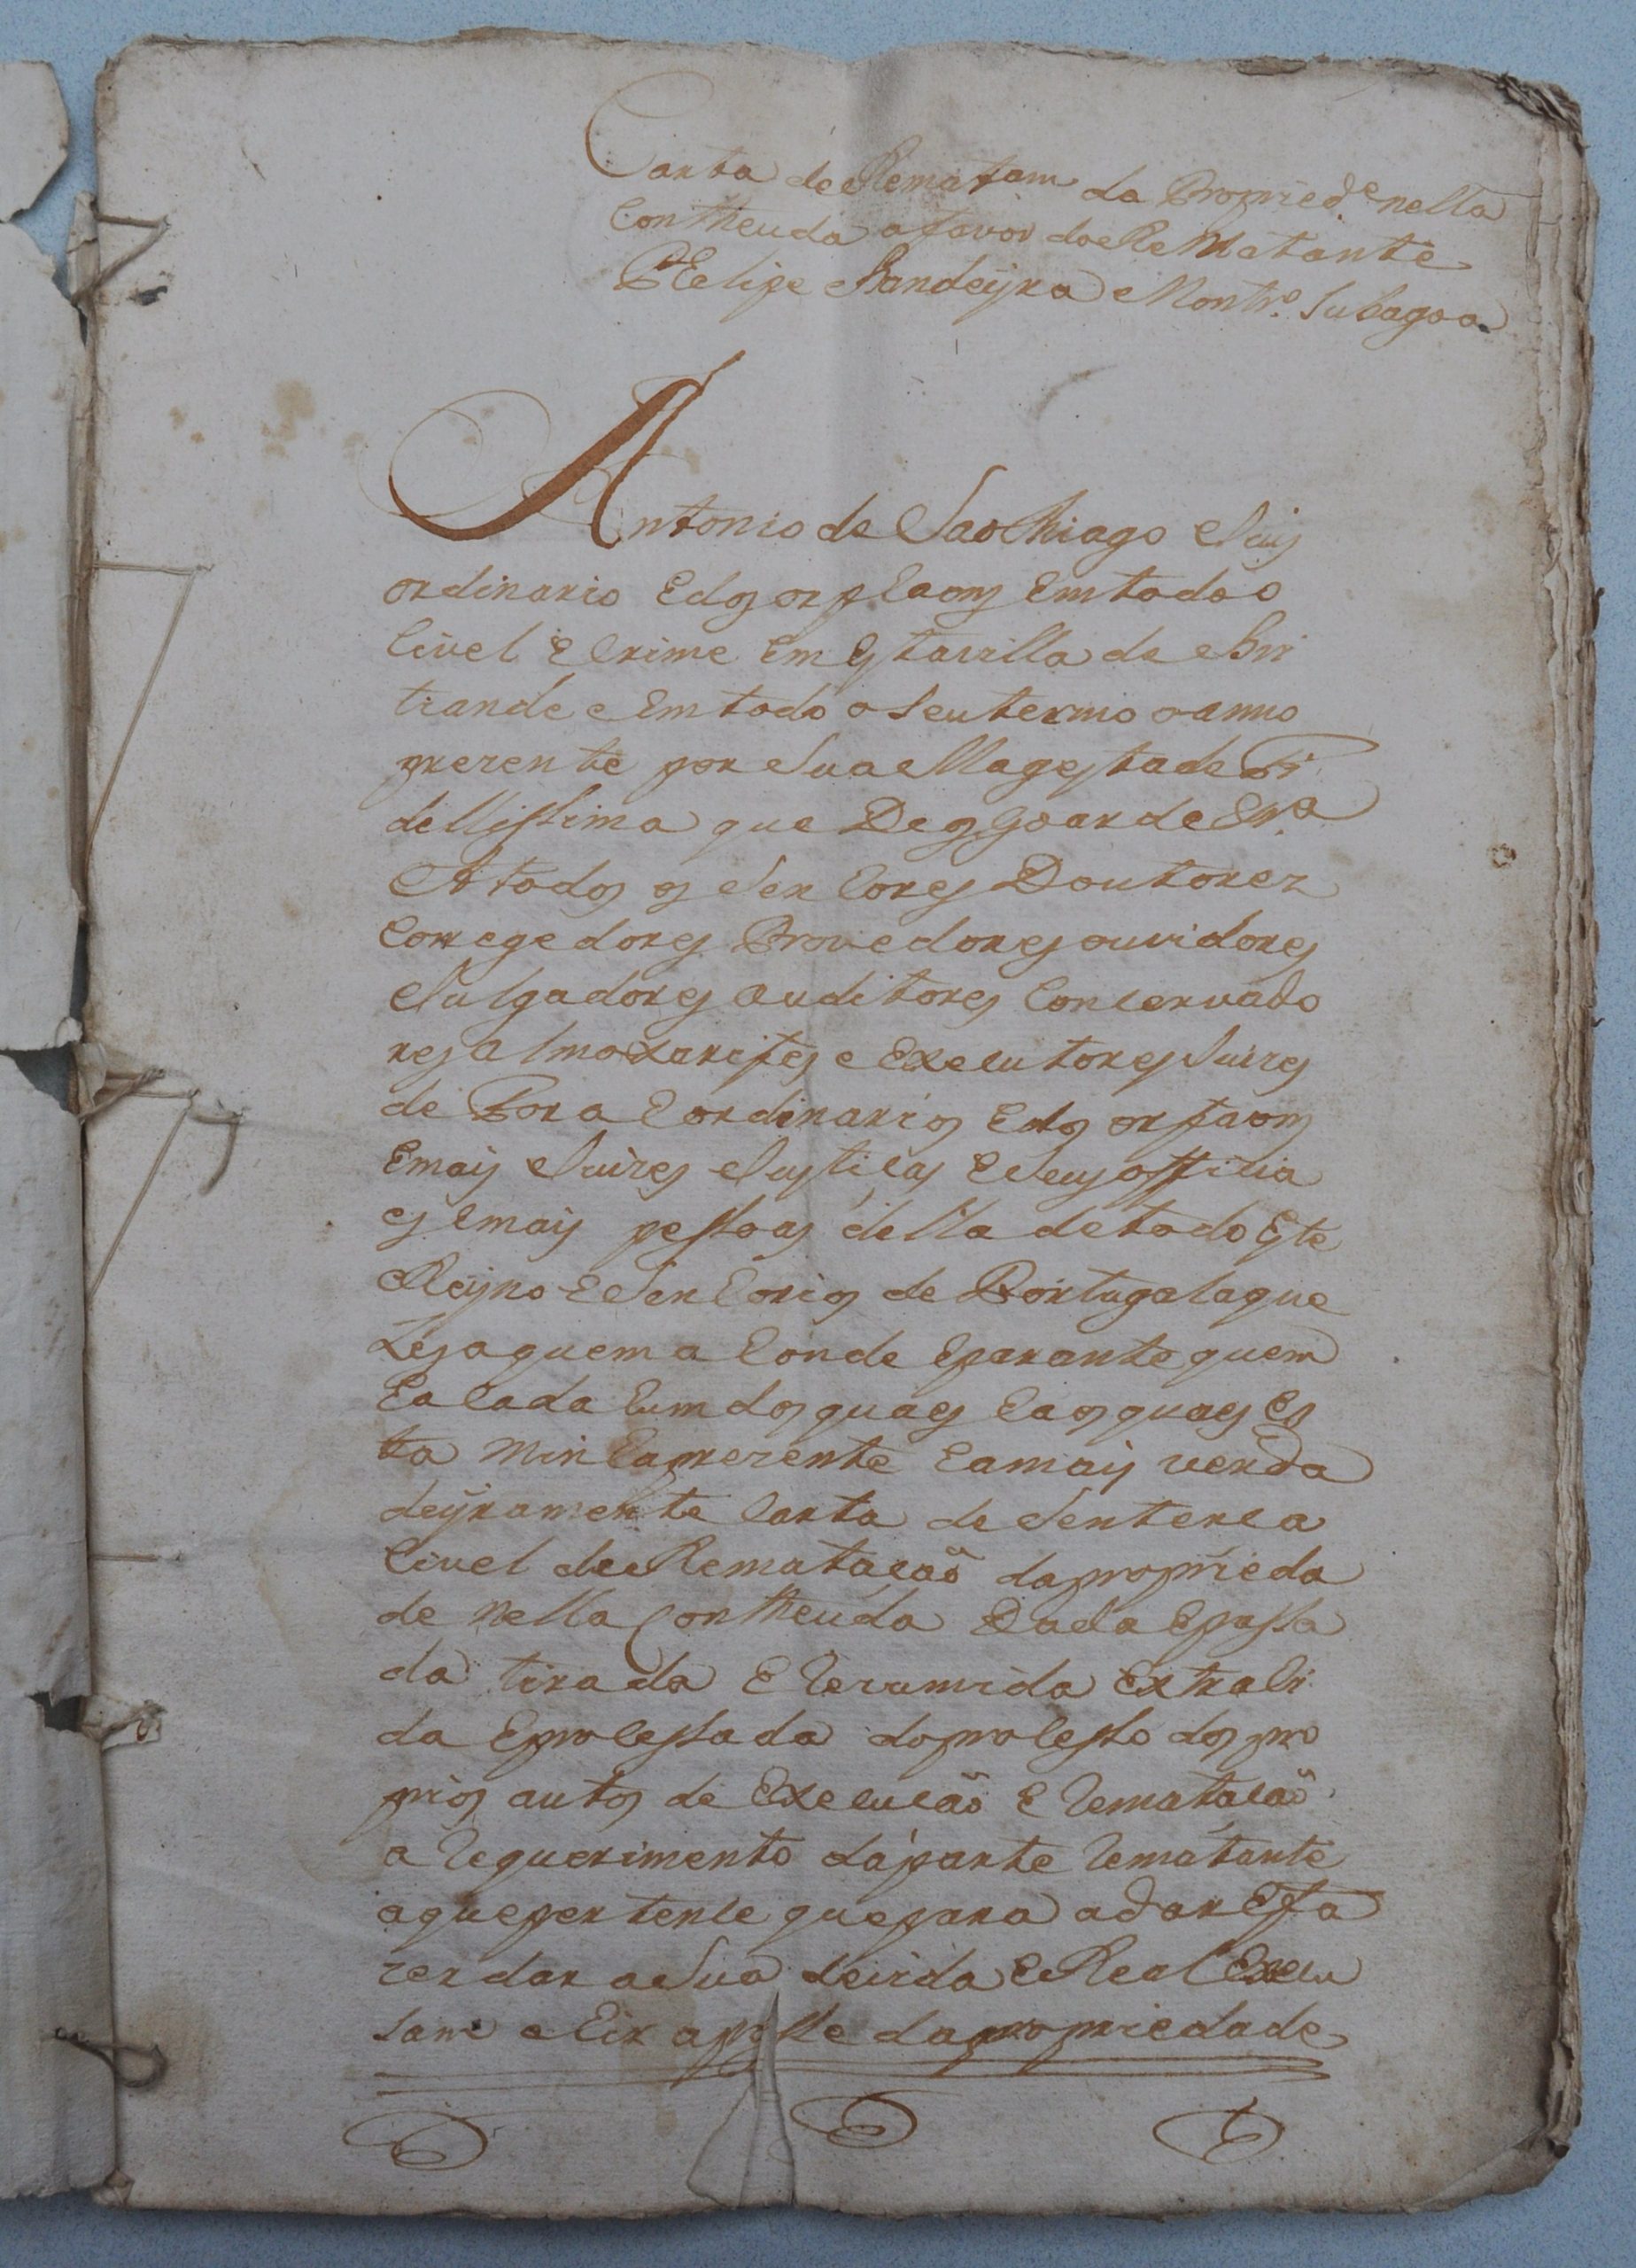 Carta de Rematam da Propried.e nella
Contheuda a favor do Rematante
Felipe Bandeyra Montr.o Subagoa
Antonio de Saothiago Juis
ordinario e dos orphaons em todo o
Civel e Crime em esta villa de Bri
tiande e em todo o seu termo o anno
prezente por Sua Magestade Fi
dellissima que Deos goarde etc.a
A todos os Senhores Doutorez
Corregedores Provedores ouvidores
Julgadores auditores Concervado
res almoxarifes e Executores Juizes
de Fora e ordinarios e dos orfaons
e mais Juizes Justicas e seus offiçia
es e mais pessoas della de todo este
Reyno e Senhorios de Portugal aque
les aquem a honde e parante quem
e a cada hum dos quaes e aos quaes es
ta minha prezente e a mais verda
deyramente Carta de Sentenca
Civel de Rematacaõ da proprieda
de nella Contheuda dada e passa
da tirada e rezumida extrahi
da e processada do processo dos pro
prios autos de Execucaõ e rematacaõ
a requerimento da parte rematante
a que pertence que para a dar e fa
zer dar a sua devida e Real Execu
sam e hir a posse da propriedade